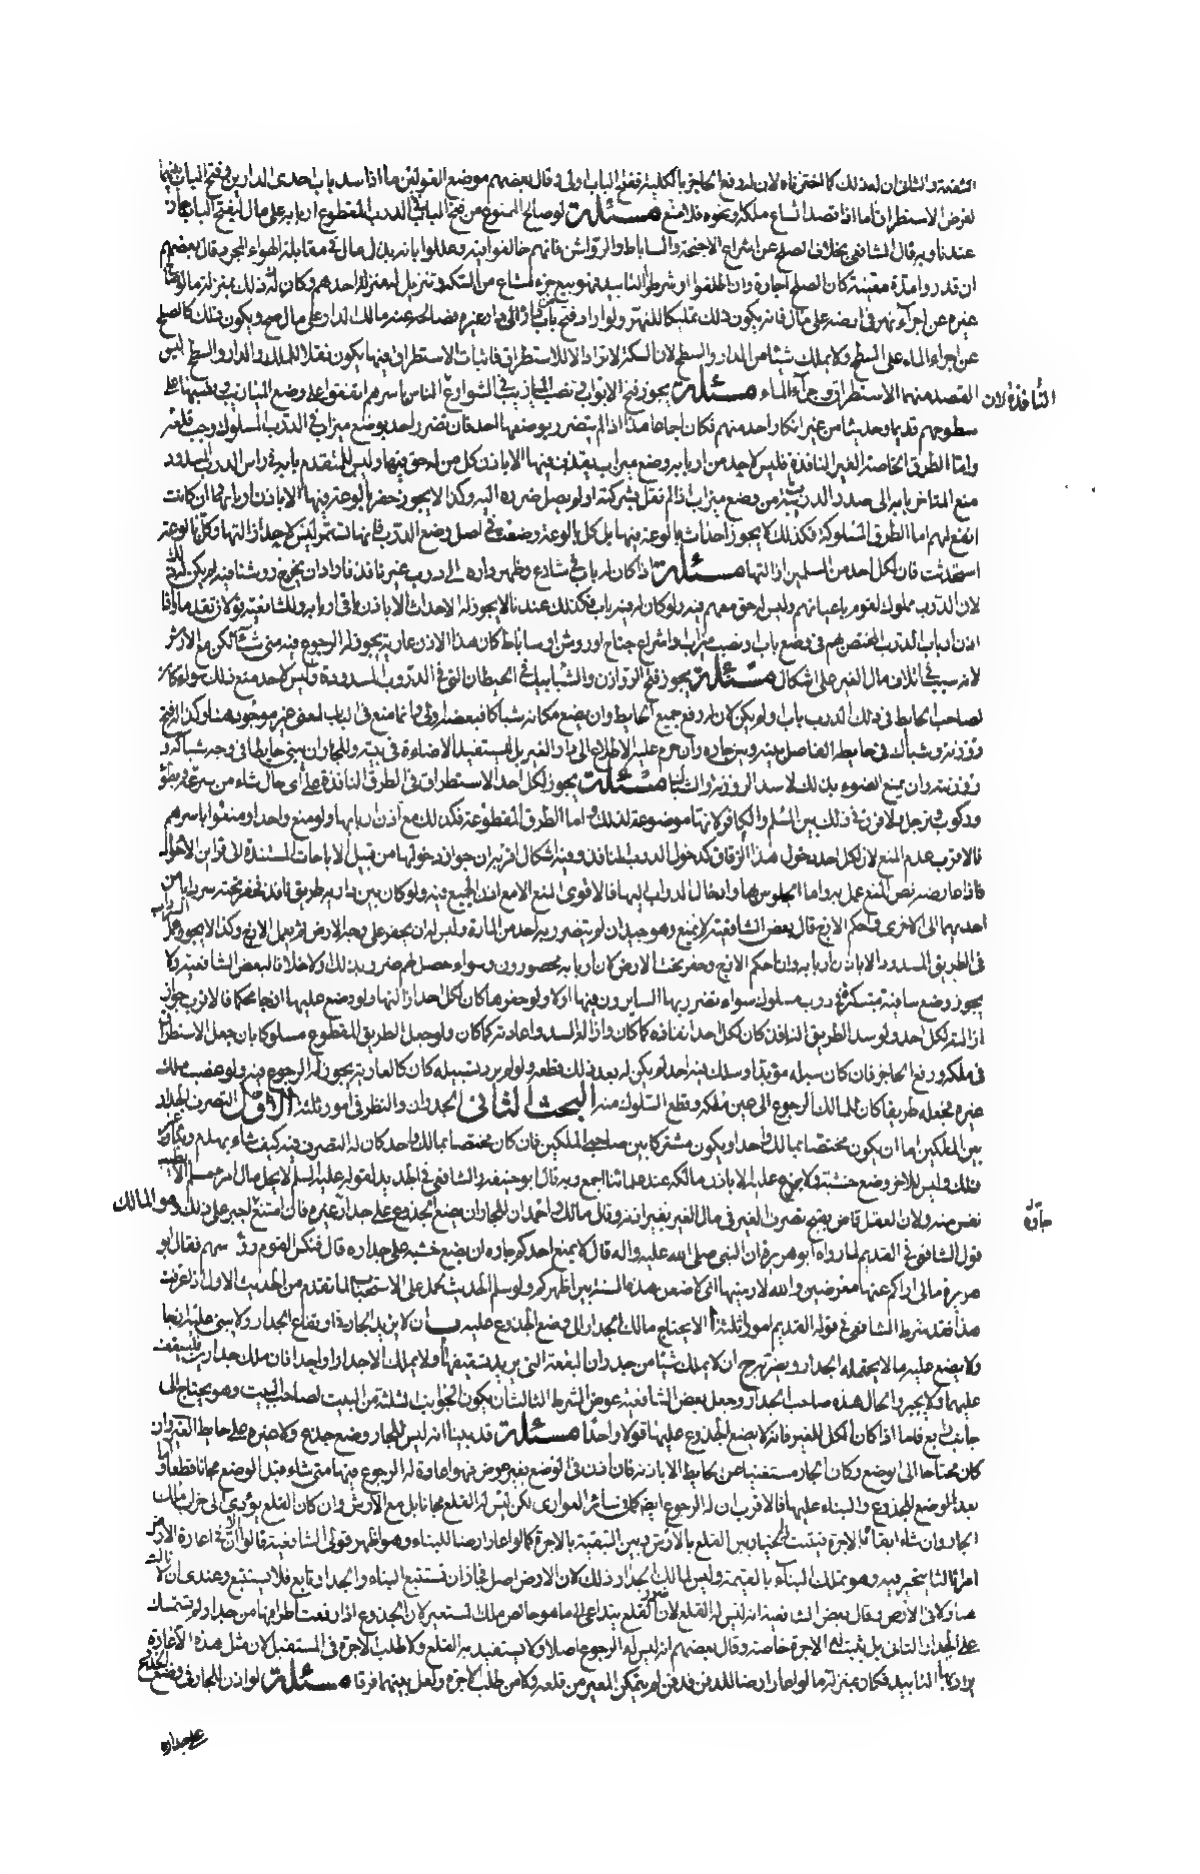 الشفعة والثاني ان لعد ذلك كما اخترناه لان له رفع الحاجز بالكلية ففتح الباب اولى وقال بعضهم موضع القولين ما اذا سد باب احدى الدارين وفتح الباب بينهما
لغرض الاستطراق اما اذا قصد اتساع ملكه ونحوه فلا منع مسئلة لو صالح الممنوع من فتح الباب في الدرب المقطوع اربابه على مال ليفتح الباب جاز
عندنا وبه قال الشافعي بخلاف الصلح عن اشراع الاجنحة والساباط والرواشن فانهم خالفوا فيه وعللوا بانه بذل مال في مقابلة الهواء المجرد قال بعضهم
ان قدروا مدة معينة كان الصلح اجارة وان اطلقوا او شرطوا التأبيد فهو بيع جزء مشاع من السكة وتنزيل له منزلة احدهم وكان ذلك بمنزلة ما لو صالح
غيره عن اجراء نهر في ارضه على مال فانه يكون ذلك تمليكا للنهر ولو اراد فتح باب من داره الى دار غيره فصالحه عنه مالك الدار على مال صح ويكون ذلك كالصلح
عن اجراء الماء على السطح ولا يملك شيئا من الدار والسطح لان السكة لا تراد الا للاستطراق فاثبات الاستطراق فيها يكون نقلا للملك والدار والسطح ليس
القصد منهما الاستطراق واجراء الماء مسئلة يجوز فتح الابواب ونصب الميازيب في الشوارع النافذة لان الناس باسرهم اتفقوا على وضع الميازيب ونصبها على
سطوحهم قديما وحديثا من غير انكار احد منهم فكان اجماعا هذا اذا لم يتضرر بوضعها احد فان تضرر احد بوضع ميزاب في الدرب المسلوك وجب قلعه
واما الطرق الخاصة الغير النافذة فليس لاحد من اربابه وضع ميزاب يقذف فيها الا باذن كل من له حق فيها وليس للمتقدم بابه في راس الدرب المسدود
منع المتاخر بابه الى صدر الدرب من وضع ميزاب اذا لم نقل بشركته او لم يصل ضرره اليه وكذا لا يجوز حفر بالوعة فيها الا باذن اربابها وان كانت
انفع لهم اما الطرق المسلوكة فكذلك لا يجوز احداث بالوعة فيها بل كل بالوعة وضعت في اصل وضع الدرب فانها تستمر ليس لاحد ازالتها وكل بالوعة
استحدثت فان لكل احد من المسلمين ازالتها مسئلة اذا كان له باب في شارع وظهر داره الى درب غير نافذ فاراد ان يخرج روشنا فيه لم يكن له ذلك
لان الدرب مملوك لقوم باعيانهم وليس له حق معهم فيه ولو كان له فيه باب فكذلك عندنا لا يجوز له الاحداث الا باذن باقي اربابه وللشافعية قولان تقدما واذا
اذن ارباب الدرب المختص بهم في وضع باب او نصب ميزاب او اشراع جناح او روشن او ساباط كان هذا الاذن عارية يجوز لهم الرجوع فيه متى شاؤا لكن مع الارش
لانه سبب في اتلاف مال الغير على اشكال مسئلة يجوز فتح الروازن والشبابيك في الحيطان التي في الدروب المسدودة وليس لاحد منع ذلك سواء كان
لصاحب الحايط في ذلك الدرب باب او لم يكن لان له رفع جميع الحايط وان يضع مكانه شباكا فبعضه اولى وانما منع في الباب لمعنى غير موجود هنا وكذا له فتح
روزنة وشباك في حايطه الفاصل بينه وبين جاره وان حرم عليه الاطلاع الى دار الغير بل ليستفيد الاضاءة في بيته وللجار ان يبني حايطا في وجه شباكه و
روزنته وان يمنع الضوء بذلك لا سد الروزنة والشباك مسئلة يجوز لكل احد الاستطراق في الطرق النافذة على اي حال شاء من سرعة وبطؤ
وركوب وترجل لا فرق في ذلك بين المسلم والكافر لانها موضوعة لذلك واما الطرق المقطوعة فكذلك مع اذن اربابها ولو منع واحد او منعوا باسرهم
فالاقرب عدم المنع لان لكل احد دخول هذا الزقاق كدخول الدرب النافذ وفيه اشكال اقربه ان جواز دخولها من قبيل الاباحات المستندة الى قراين الاحوال
فاذا عارضه نص المنع عمل به واما الجلوس بها وادخال الدواب اليها فالاقوى المنع الا مع اذن الجميع فيه ولو كان بين داريه طريق نافذ فحفر تحته سردابا من
احديهما الى الاخرى واحكم الازج قال بعض الشافعية لا يمنع وهو جيد ان لم يتضرر به احد من المارة وليس له ان يحفر على وجه الارض ثم يعمل الازج وكذا لا يجوز عمل السرداب
في الطريق المسدود الا باذن اربابه وان احكم الازج وحفر تحت الارض لان اربابه محصورون وسواء حصل لهم ضرر بذلك او لا خلافا لبعض الشافعية ولا
يجوز وضع ساقية مبتكرة في درب مسلوك سواء تضرر بها السابرون فيها او لا ولو حفروها كان لكل احد ازالتها ولو وضع عليها ازجا محكما فالاقرب جواز
ازالته لكل احد ولو سد الطريق النافذ كان لكل احد انفاذه كما كان وازالة السد واعادته كما كان ولو جعل الطريق المقطوع مسلوكا بان جعل الاستطراق
في ملكه ورفع الحاجز فان كان سبله مؤبدا وسلك فيه احد لم يكن له بعد ذلك قطعه ولو لم يرد تسبيله كان كالعارية يجوز له الرجوع فيه ولو غصب ملك
غيره فجعله طريقا كان للمالك الرجوع الى عين ملكه وقطع السلوك منه البحث الثاني الجدران والنظر في امور ثلثة الاول التصرف الجدار
بين الملكين اما ان يكون مختصا بمالك واحد او يكون مشتركا بين صاحبي الملكين فان كان مختصا بمالك واحد كان له التصرف فيه كيف شاء بهدم وبناء وغير
ذلك وليس للاخر وضع خشبة ولا جذع عليه الا باذن مالكه عند علمائنا اجمع وبه قال ابو حنيفة والشافعي في الجديد لقوله عليه السلام لا يحل مال امرئ مسلم الا بطيب
نفس منه ولان العقل قاض بقبح تصرف الغير في مال الغير بغير اذنه وقال مالك واحمد ان للجار ان يضع الجذوع على جدار جاره وان امتنع اجبر على ذلك وهو
قول الشافعي في القديم لما رواه ابو هريرة ان النبي صلى الله عليه واله قال لا يمنع احدكم جاره ان يضع خشبه على جداره قال فنكس القوم رؤسهم فقال ابو
هريرة مالي اراكم عنها معرضين والله لارمينها اي لاضعن هذه السنة بين اظهركم ولو سلم الحديث حمل على الاستحباب لما تقدم من الحديث الاول اذا عرفت
هذا فقد شرط الشافعي في قوله القديم امورا ثلثة ا الا يحتاج مالك الجدار الى وضع الجذوع عليه ب ان لا يزيد الجار في ارتفاع الجدار ولا يبني عليه ازجا
ولا يضع عليه ما لا يحتمله الجدار ويضر به ج ان لا يملك شيئا من جدران البقعة التي يريد تسقيفها او لا يملك الا جدارا واحدا فان ملك جدارين فليسقف
عليهما ولا يجبر والحال هذه صاحب الجدار وجعل بعض الشافعية عوض الشرط الثالث ان يكون الجوانب الثلثة من البيت لصاحب البيت وهو يحتاج الى
جانب رابع فاما اذا كان الكل للغير فانه لا يضع الجذوع عليها قولا واحدا مسئلة قد بينا انه ليس للجار وضع جذع ولا غيره على حايط الغير وان
كان محتاجا الى الوضع وكان الجار مستغنيا عن الحايط الا باذنه فان اذن في الوضع بغير عوض فهو اعارة له الرجوع فيها متى شاء قبل الوضع مجانا قطعا واما
بعد الوضع للجذوع والبناء عليها فالاقرب ان له الرجوع ايضا كما في سائر العواري لكن ليس له القلع مجانا بل مع الارش وان كان القلع يؤدي الى خراب ملك
الجار وان شاء ابقاها بالاجرة فيثبت الخيار بين القلع بالارش وبين التبقية بالاجرة كما لو اعار ارضا للبناء وهو اظهر قولي الشافعية قالوا الا ان في اعارة الارض
امرا ثالثا تخير فيه وهو تملك البناء بالقيمة وليس لمالك الجدار ذلك لان الارض اصل فجاز ان تستتبع البناء والجدار تابع فلا يستتبع وعندي ان لا ثالث
هنا ولا في الارض وقال بعض الشافعية انه ليس له القلع لان ضرر القلع يتداعى الى ما هو خالص ملك المستعير لان الجذوع اذا رفعت اطرافها من جدار لم تتمسك
على الجدار الثاني بل يثبت له الاجرة خاصة وقال بعضهم انه ليس له الرجوع اصلا ولا يستفيد به القلع ولا طلب الاجرة في المستقبل لان مثل هذه الاعارة
يراد بها التابيد فكان بمنزلة ما لو اعار ارضا للدفن فدفن لم يتمكن المعير من قلعه ولا من طلب الاجرة ولعل بينهما فرقا مسئلة لو اذن للجار في وضع الجذع
على جداره